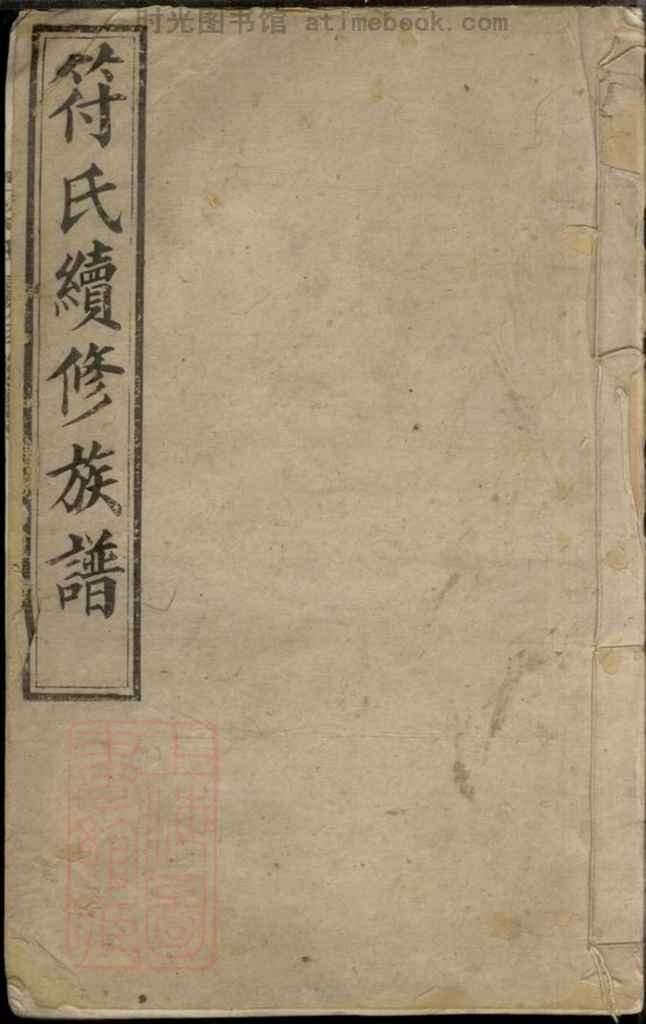 时光图书馆 atimebook.com
符氏續修族譜